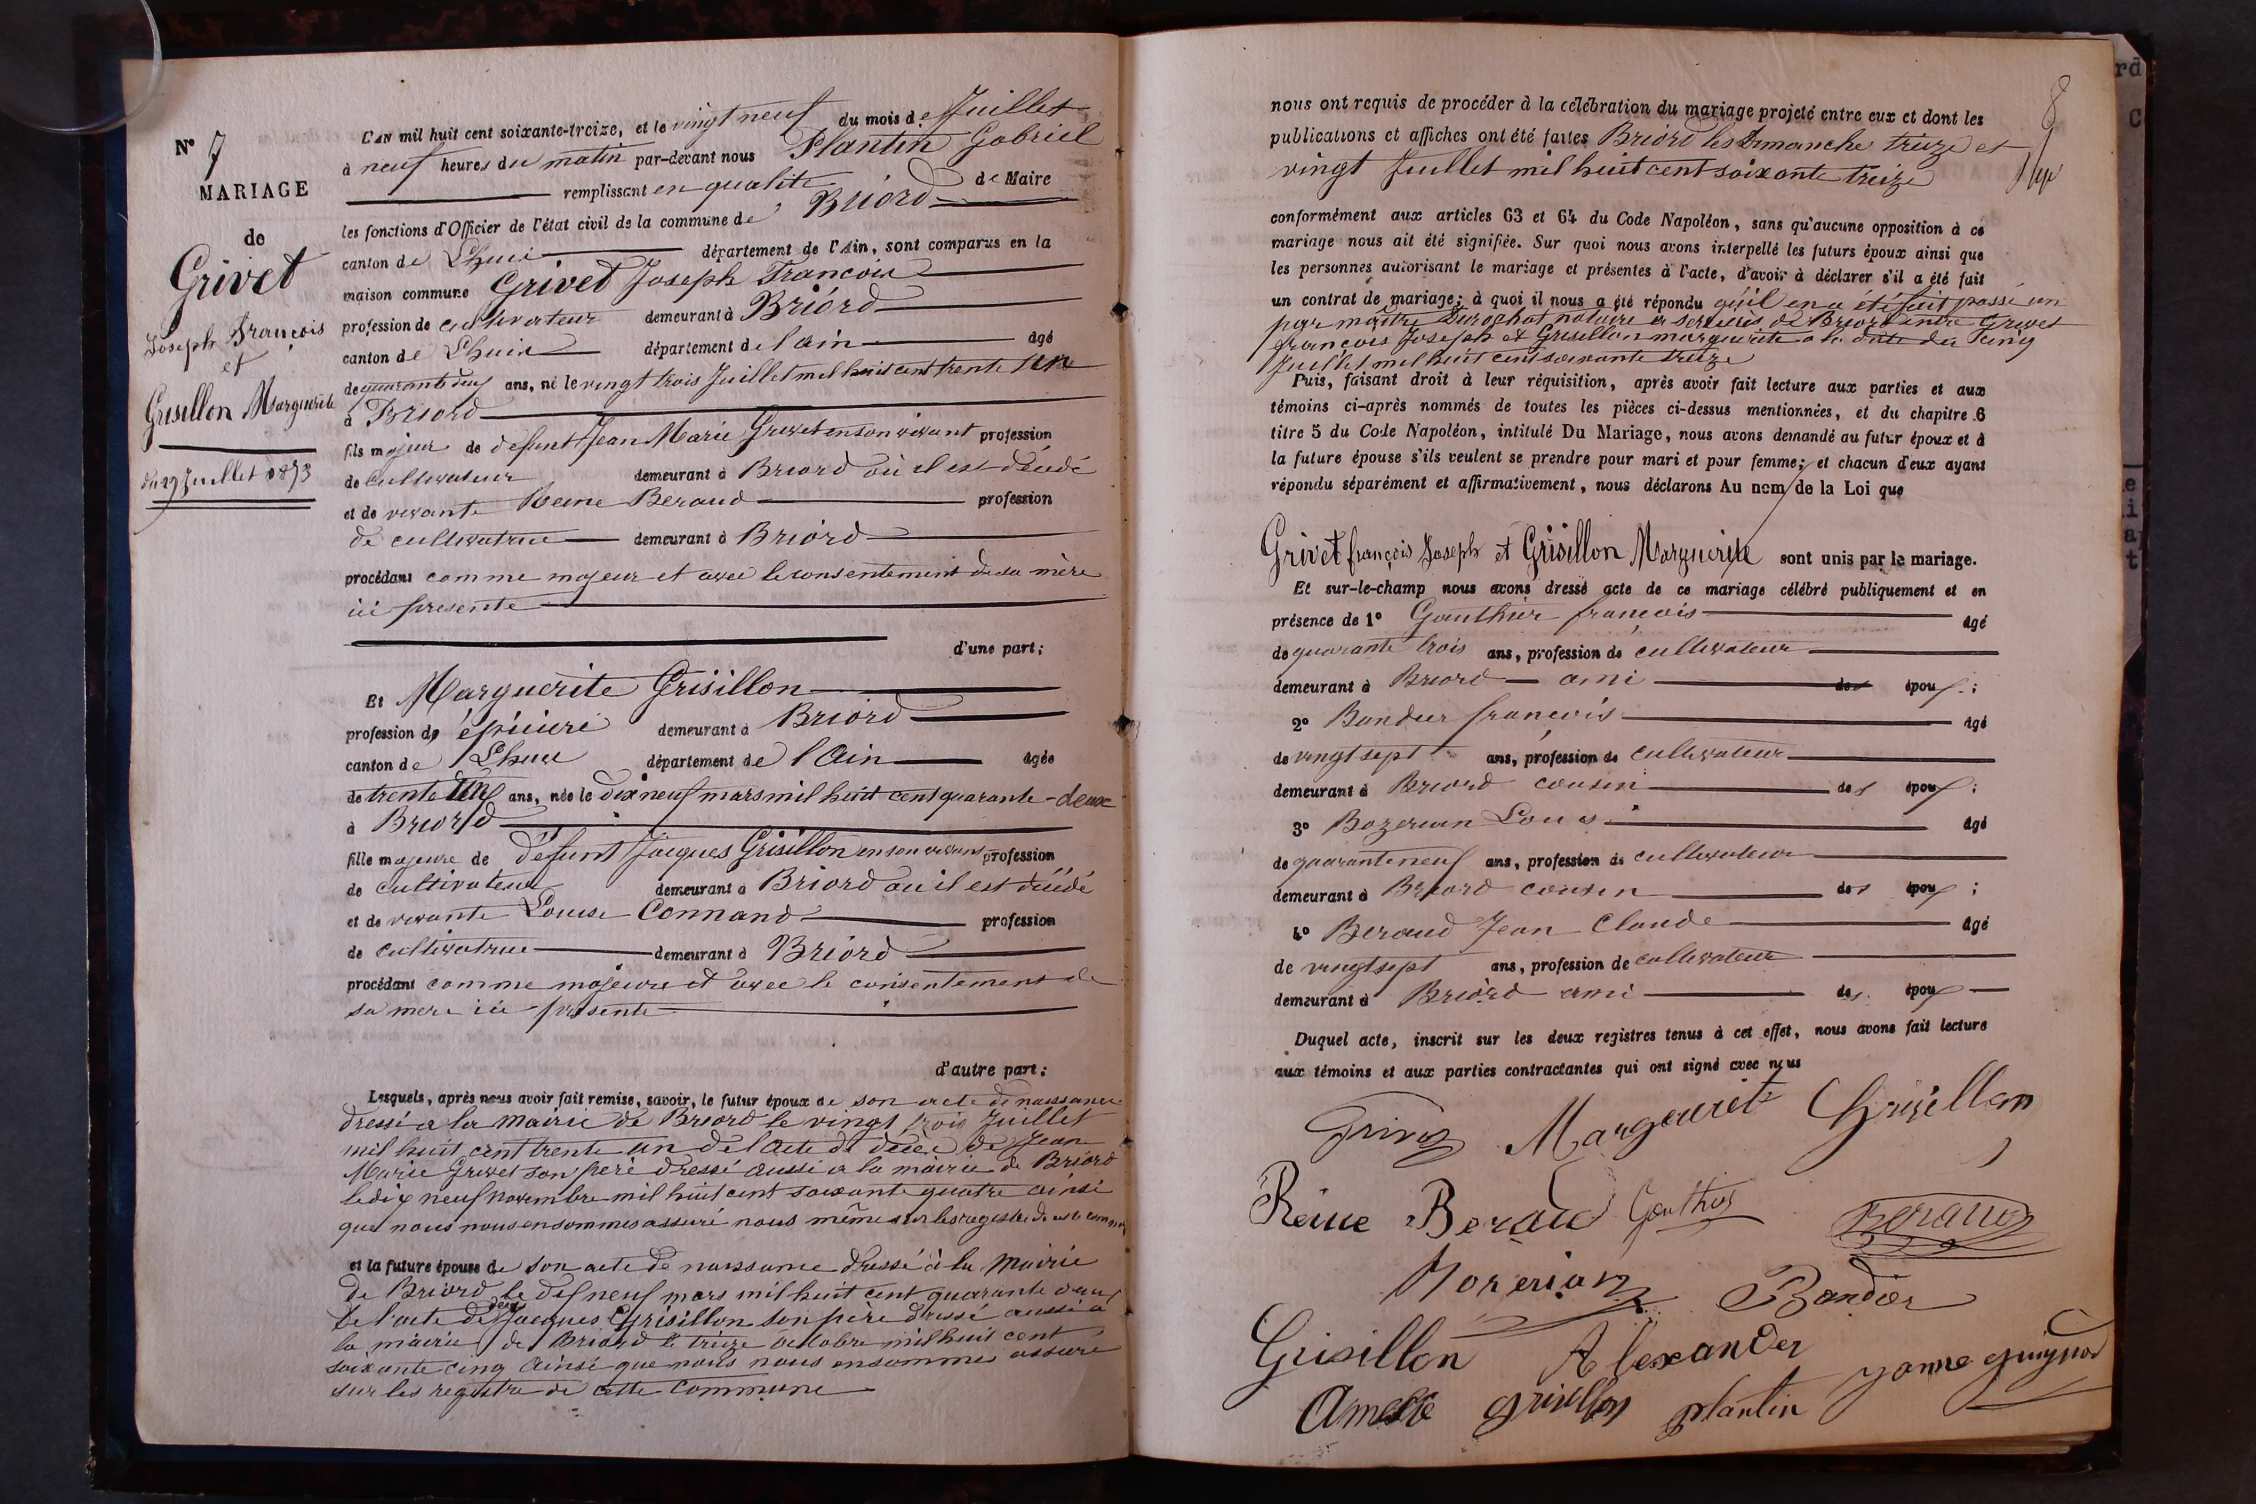 N° 7
MARIAGE
de
Grivet
Joseph François
et
Grisillon Marguerite
du 29 Juillet 1873
L'AN mil huit cent soixante-treize, et le vingt neuf du mois de Juillet
à neuf heures du matin par-devant nous Plantin Gabriel
remplissant en qualité de Maire
les fonctions d'Officier de l'état civil de la commune de Briord
canton de Lhuis département de l'Ain, sont comparus en la
maison commune Grivet Joseph François
profession de cultivateur demeurant à Briord
canton de Lhuis département de l'ain âgé
de quarante deux ans, né le vingt trois Juillet mil huit cent trente un
à Briord
fils majeur de defunt Jean Marie Grivet en son vivant profession
de cultivateur demeurant à Briord où il est décédé
et de vivante Reine Beraud profession
de cultivatrice demeurant à Briord
procédant comme majeur et avec le consentement de sa mère
ici presente
d'une part;
Et Marguerite Grisillon
profession de épicière demeurant à Briord
canton de Lhuis département de l'Ain âgée
de trente un ans, née le dix neuf mars mil huit cent quarante-deux
à Briord
fille majeure de defunt Jacques Grisillon en son vivant profession
de cultivateur demeurant à Briord où il est décédé
et de vivante Louise Connand profession
de cultivatrice demeurant à Briord
procédant comme majeure et avec le consentement de
sa mere ici presente
d'autre part;
Lesquels, après nous avoir fait remise, savoir, le futur époux de son acte de naissance
dressé a la mairie de Briord le vingt trois Juillet
mil huit cent trente un de l'acte de décès de Jean
Marie Grivet son père dressé aussi a la mairie de Briord
le dix neuf novembre mil huit cent soixante quatre ainsi
que nous nous en sommes assuré nous même sur les registres de cette commune
et la future épouse de son acte de naissance dressé à la Mairie
de Briord le dix neuf mars mil huit cent quarante deux
de l'acte de décès Jacques Grisillon son père dressé aussi à
la mairie de Briord le treize octobre mil huit cent
soixante cinq ainsi que nous nous en sommes assuré
sur les registre de cette commune
8
nous ont requis de procéder à la célébration du mariage projeté entre eux et dont les
publications et affiches ont été faites Briord les Dimanche treize et
vingt Juillet mil huit cent soixante treize
conformément aux articles 63 et 64 du Code Napoléon, sans qu'aucune opposition à ce
mariage nous ait été signifiée. Sur quoi nous avons interpellé les futurs époux ainsi que
les personnes autorisant le mariage et présentes à l'acte, d'avoir à déclarer s'il a été fait
un contrat de mariage; à quoi il nous a été répondu qu'il en a été fait passé un
par maître notaire a de Briord entre Grivet
françois Joseph et Grisillon marguerite a la date du cinq
Juillet mil huit cent soixante treize
Puis, faisant droit à leur réquisition, après avoir fait lecture aux parties et aux
témoins ci-après nommés de toutes les pièces ci-dessus mentionnées, et du chapitre 6
titre 5 du Code Napoléon, intitulé Du Mariage, nous avons demandé au futur époux et à
la future épouse s'ils veulent se prendre pour mari et pour femme; et chacun d'eux ayant
répondu séparément et affirmativement, nous déclarons Au nom de la Loi que
Grivet françois Joseph et Grisillon Marguerite sont unis par le mariage.
Et sur-le-champ nous avons dressé acte de ce mariage célébré publiquement et en
présence de 1° Gauthier françois âgé
de quarante trois ans, profession de cultivateur
demeurant à Briord ami des époux;
2° Bandier françois âgé
de vingt sept ans, profession de cultivateur
demeurant à Briord cousin des époux;
3° Bozerian Louis âgé
de quarante neuf ans, profession de cultivateur
demeurant à Briord cousin des époux;
4° Beraud Jean Claude âgé
de vingt sept ans, profession de cultivateur
demeurant à Briord ami des époux
Duquel acte, inscrit sur les deux registres tenus à cet effet, nous avons fait lecture
aux témoins et aux parties contractantes qui ont signé avec nous
Grivet Margeurite Grisillon
Reine Beraud Gauthier Beraud
Bozerian Bandier
Grisillon Alexander
grisillon plantin